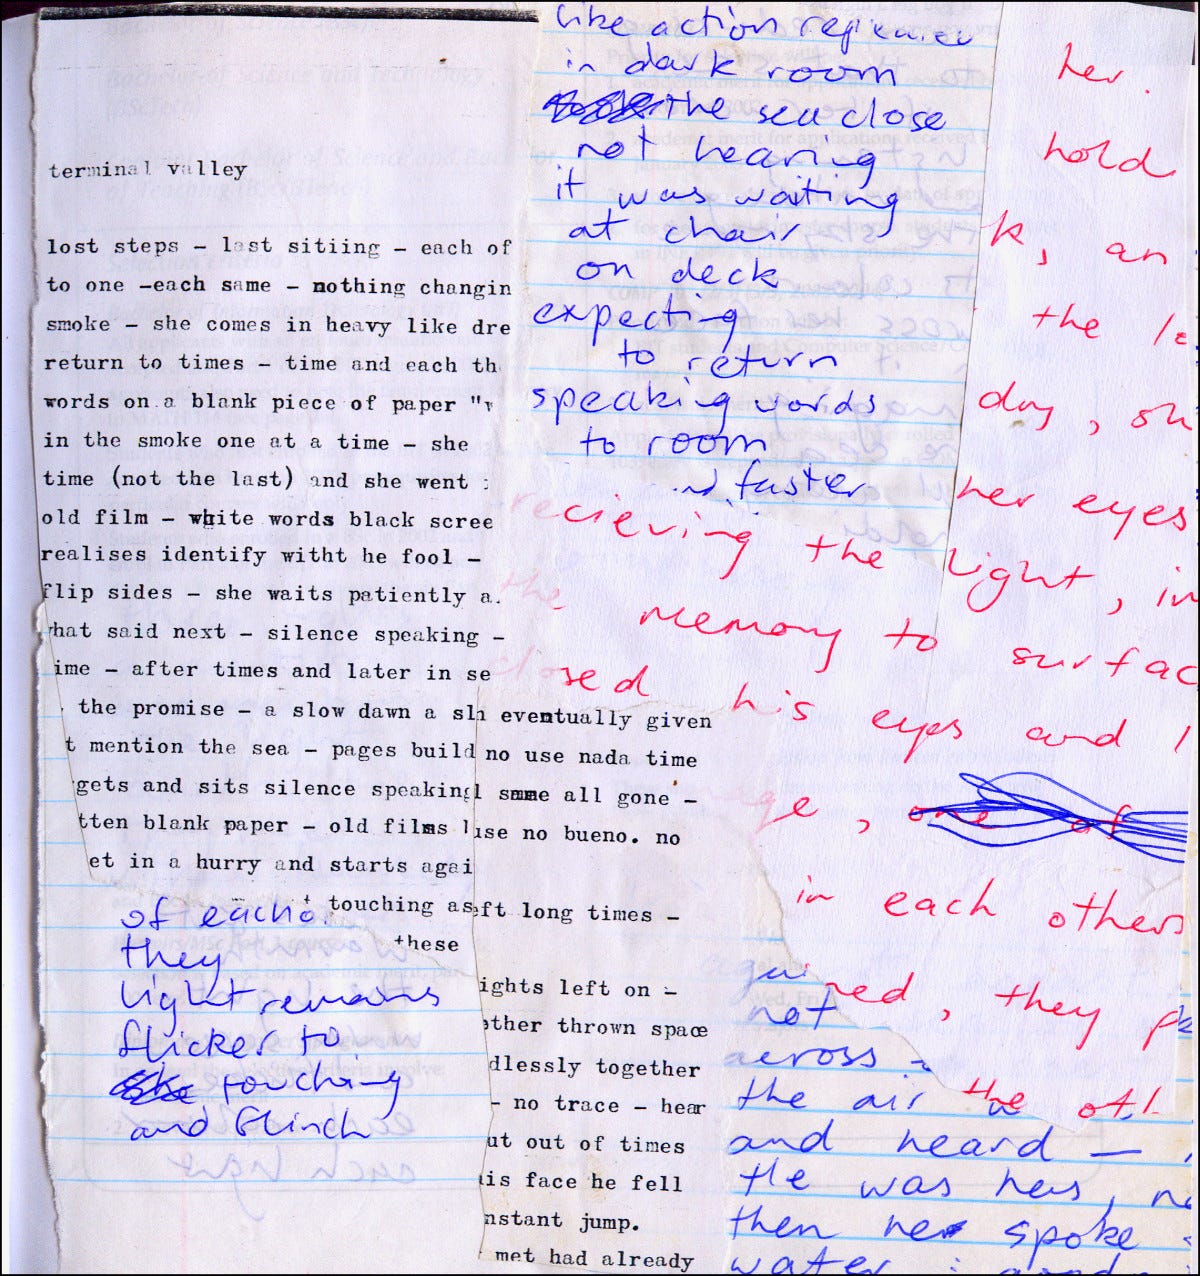 terminal valley
lost steps - last sitiing - each of
to one -each same - nothing changin
smoke - she comes in heavy like dre
return to times - time and each th
words on a blank piece of paper "
in the smoke one at a time - she
time (not the last) and she went
old film - white words black scree
realises identify witht he fool -
flip sides - she waits patiently a
hat said next - silence speaking -
ime - after times and later in se
the promise - a slow dawn a sl
t mention the sea - pages build
gets and sits silence speaking
tten blank paper - old films
et in a hurry and starts agai
touching as
these
of eacho
they
light remains
flicker to
touching
and flinch
eventually given
no use nada time
l same all gone -
use no bueno. no
eft long times -
ights left on -
ther thrown space
dlessly together
- no trace - hear
ut out of times
is face he fell
nstant jump.
met had already
like action
in dark room
the sea close
not hearing
it was waiting
at chair
on deck
expecting
to return
speaking words
to room
faster
her.
hold
k, an
the le
day, sh
her eyes
recieving the light, in
the memory to surfac
closed his eyes and l
ge, one of
in each others
ned, they p
the oth
gai
not
across -
the air
and heard —
He was hers, n
then he spoke
water